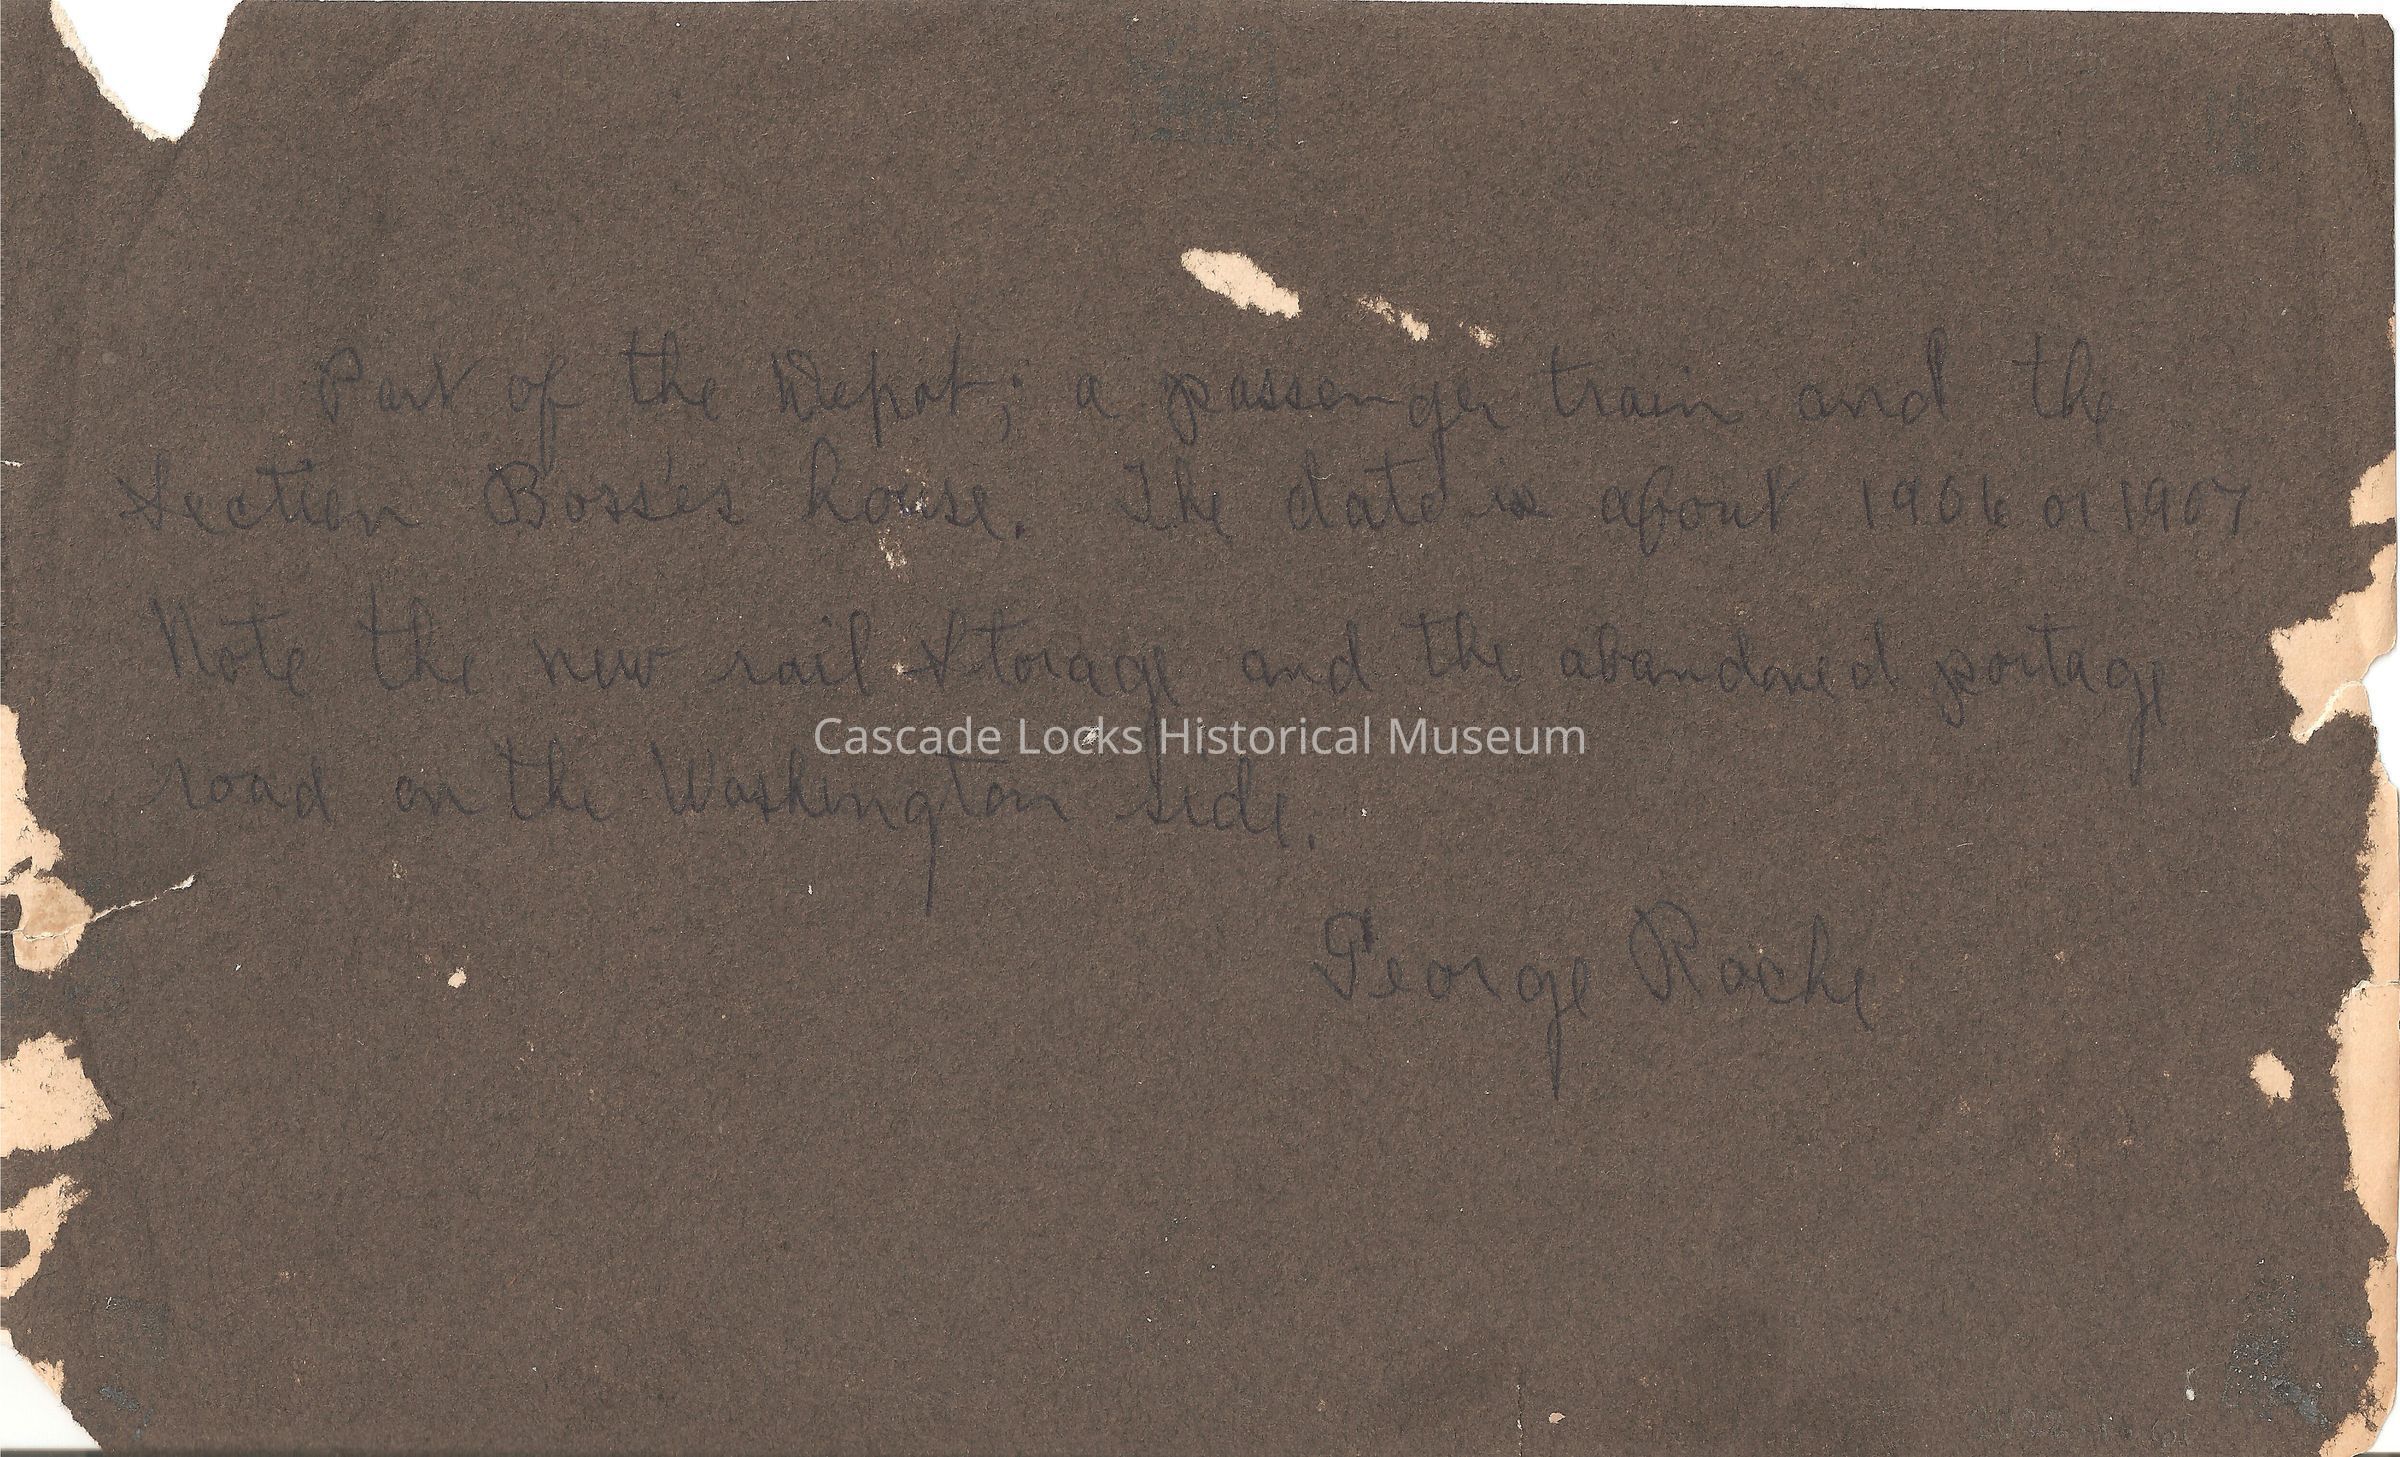 Part of the Depot; a passenger train and the
Section Boss'es house. The date is about 1906 or 1907
Note the new rail storage and the abandoned portage
Cascade Locks Historical Museum
road on the Washington side.
George Roche